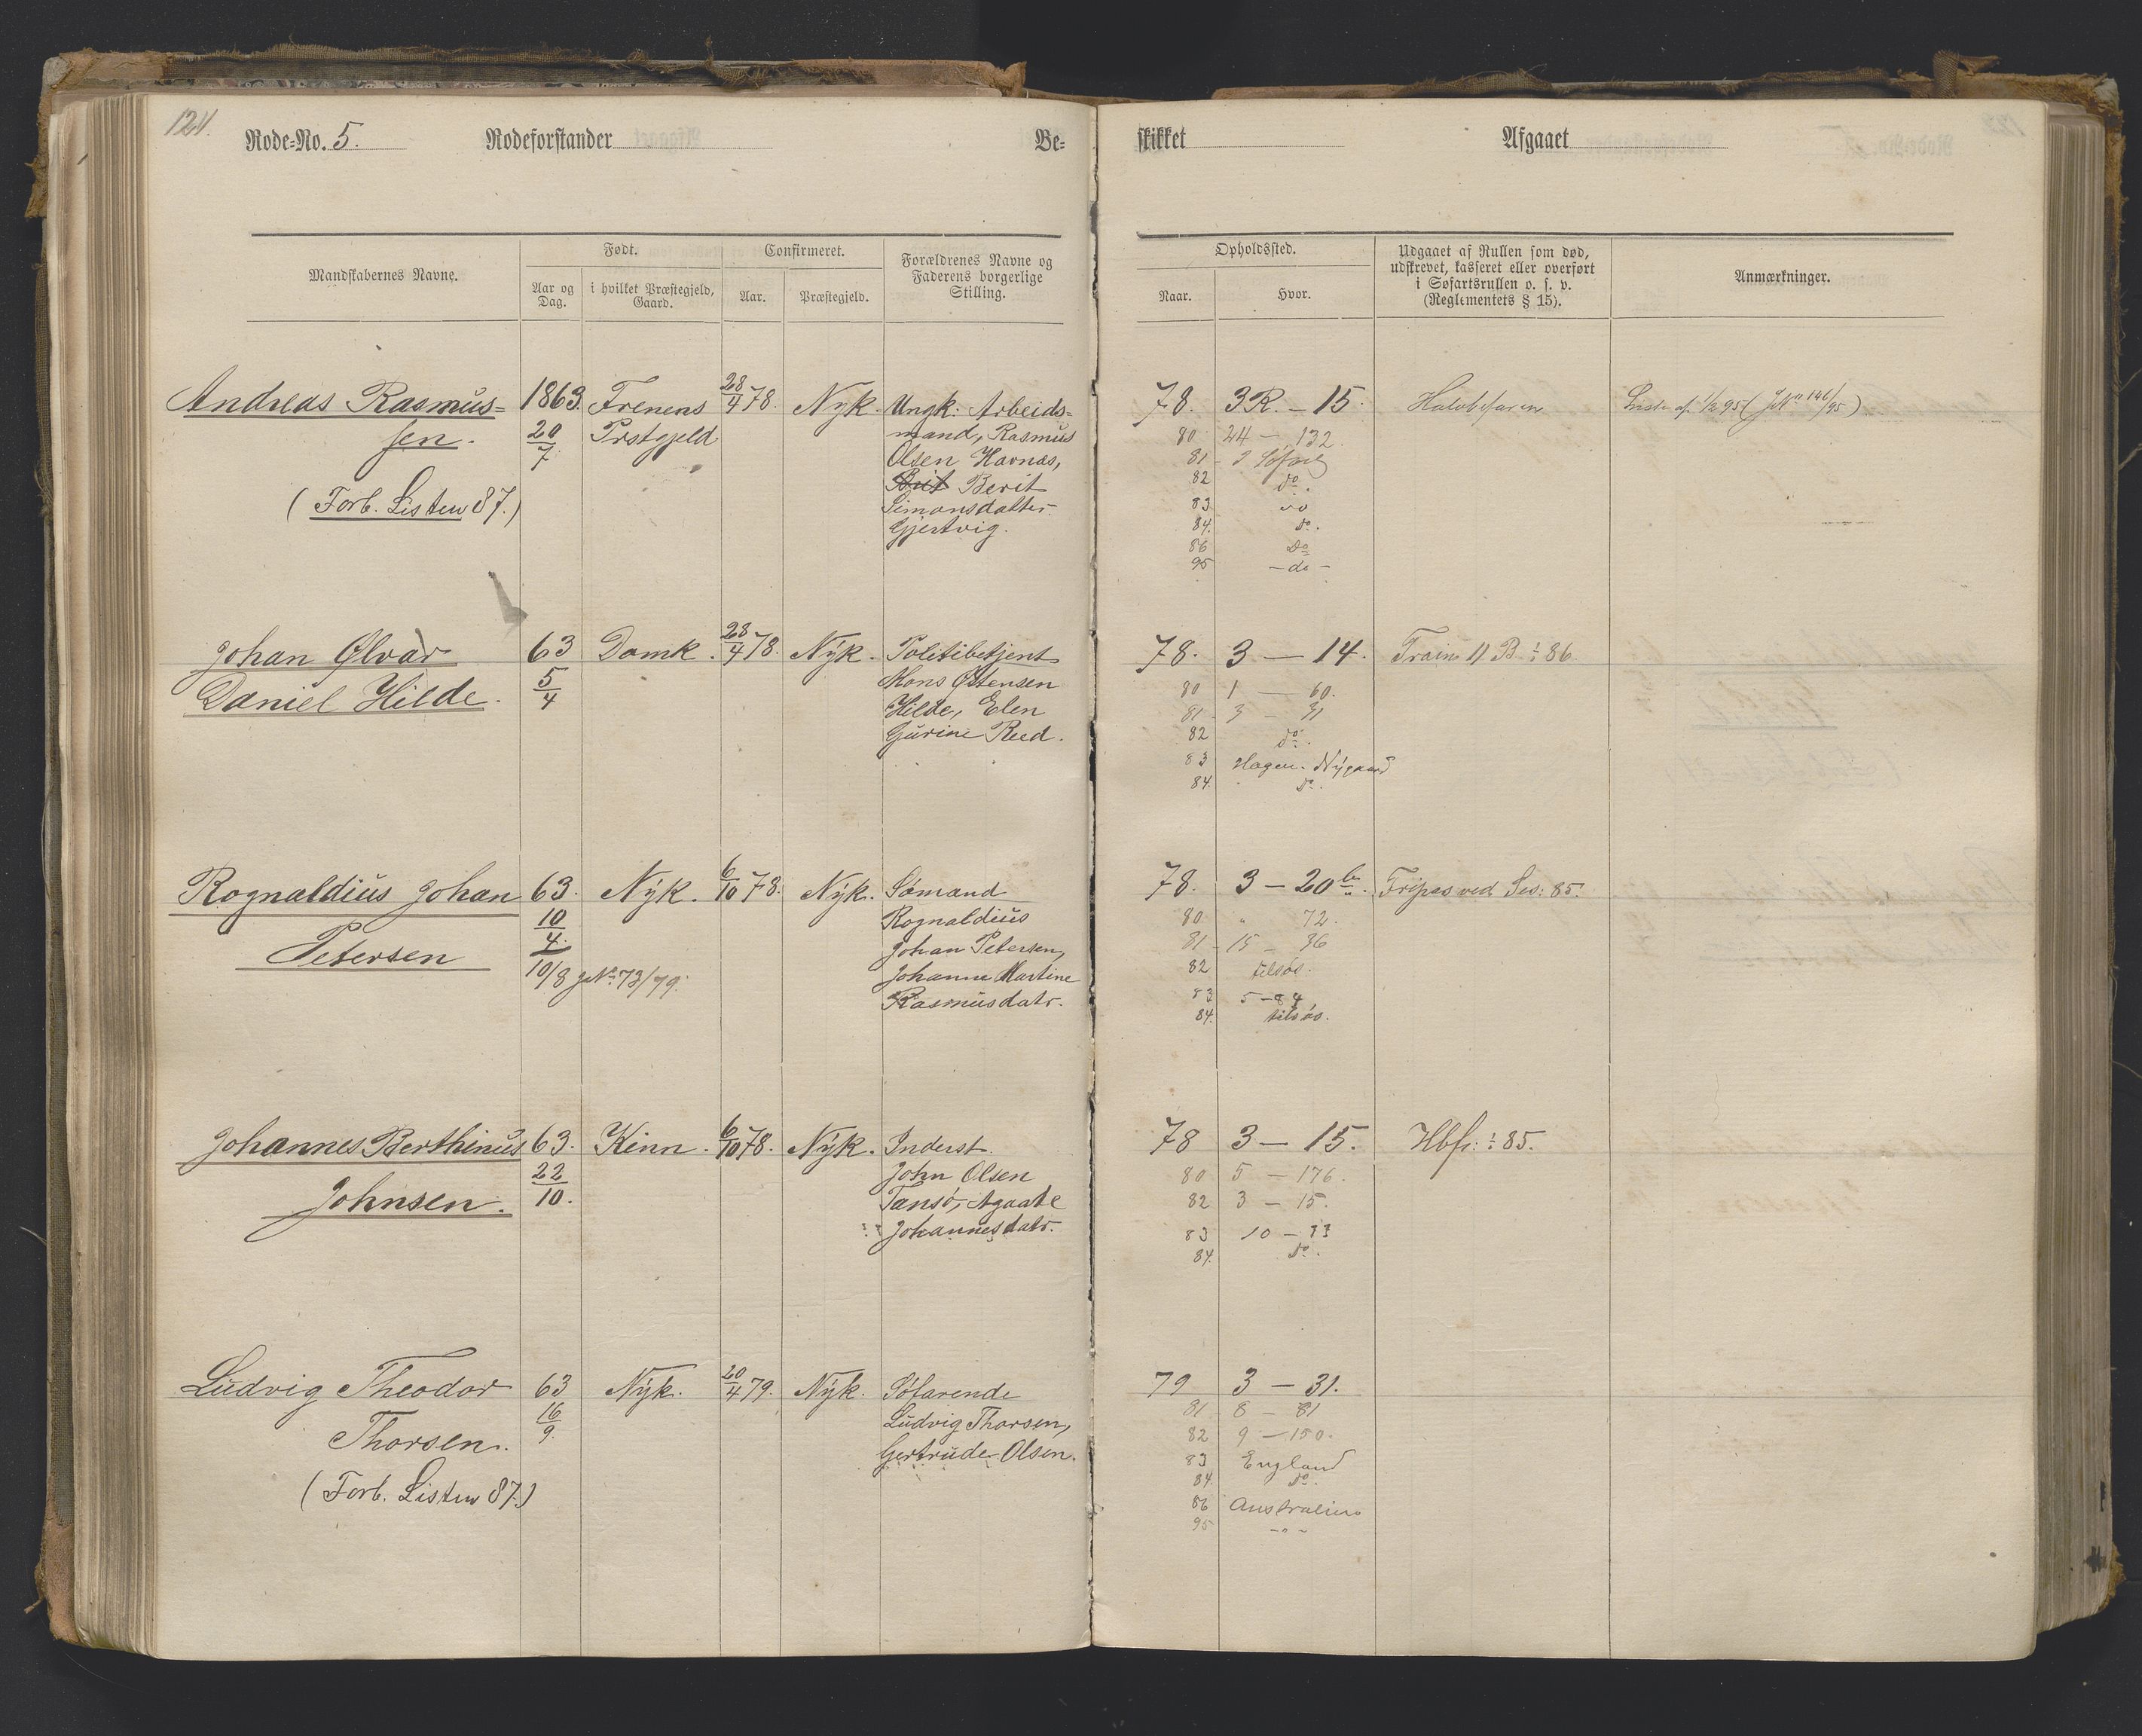 124.
Rode-No. 5. Rodeforstander Be- skikket Afgaaet
Mandskabernes Navne. Født. Aar og Dag. i hvilket Præstegjeld, Gaard. Confirmeret. Aar. Præstegjeld. Forældrenes Navne og Faderens borgerlige Stilling. Opholdssted. Naar. Hvor. Udgaaet af Rullen som død, udskrevet, kasseret eller overført i Søfartsrullen o. s. v. (Reglementets § 15). Anmærkninger.
Andreas Rasmus= 1863. Frenens 28/4 78. Nyk. Ungk: Arbeids= 78. 3R. – 15. Halvbefaren
sen. 20/7 Prstgjeld mand, Rasmus 80 24 – 132.
Olsen Havnas, 81
Berit 82 do.
(Forb. Listen 87.) Simonsdatter 83 do
Gjertvig. 84. do.
86 Do
95 – do –
Johan Ølvar 63 Domk. 28/4 78. Nyk. Politibetjent 78. 3 – 14. Train 11 B 86.
Daniel Hilde. 5/4 Mons Østensen 80 1 – 60.
Hilde, Elen 81 – 3 – 31
Gurine Reed. 82 do.
83 Hagen. Nygaard
84. do.
Rognaldius Johan 63. Nyk. 6/10 78. Nyk. Sømand 78. 3 – 20 b. Fripas ved Ses: 85.
Petersen 10/4. Rognaldius 80 " 72.
Johan Petersen, 81 – 15 – 36
10/8 JNo. 73/79. Johanne Martine 82 tilsøs.
Rasmusdatr. 83 5 – 84
84. tilsøs.
Johannes Berthinus 63. Kinn. 6/10 78. Nyk. Inderst. 78 3 – 15. Hbfr: 85.
Johnsen. 22/10. John Olsen 80 5 – 176.
Tansø, Agaate 82 3 – 15.
Johannesdatr. 83 10 – 83
84. do.
Ludvig Theodor 63 Nyk. 20/4 79. Nyk. Søfarende 79 3 – 31.
Thorsen. 16/9. Ludvig Thorsen, 81 8 – 81
Gertrude Olsen. 82 9 – 150.
(Forb. Listen 87.) 83 England
84. do.
86 Australien
95 – " –